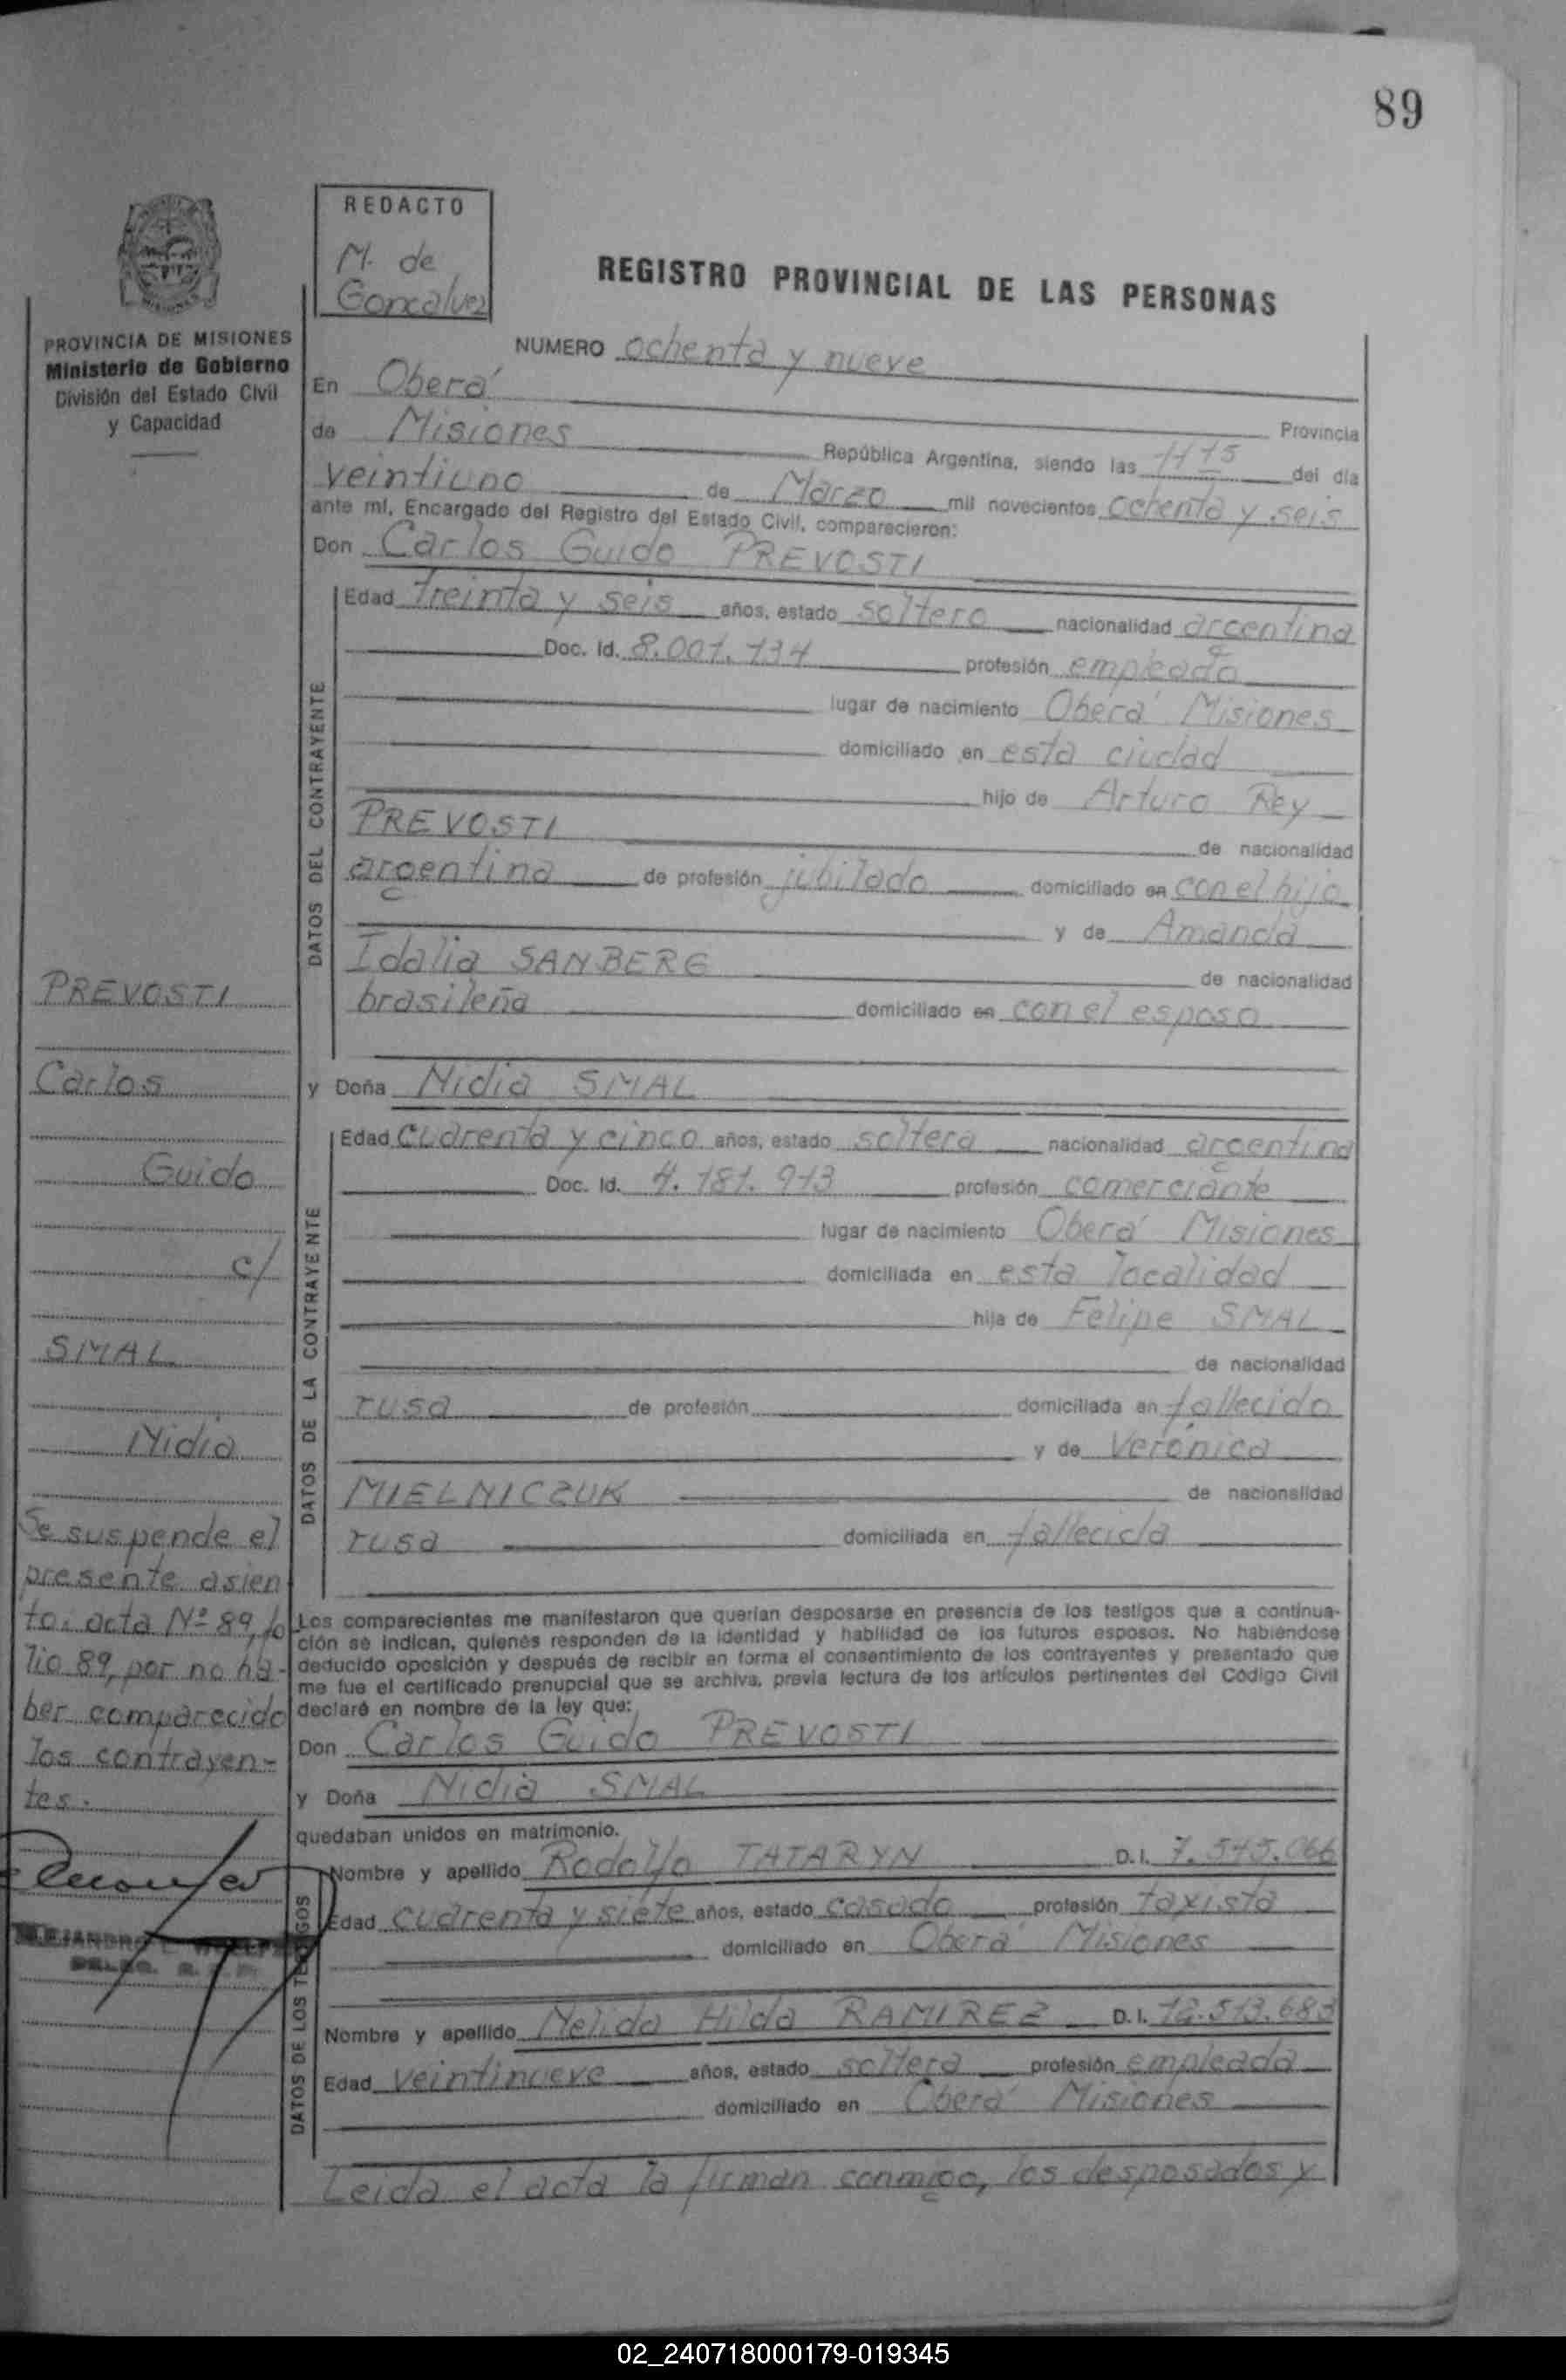 89
REDACTO
M. de
Goncalvez
REGISTRO PROVINCIAL DE LAS PERSONAS
PROVINCIA DE MISIONES
Ministerio de Gobierno
División del Estado Civil
y Capacidad
NUMERO ochenta y nueve
En Oberá
Provincia
de Misiones República Argentina, siendo las 11 15 del día
veintiuno de Marzo mil novecientos ochenta y seis
ante mí, Encargado del Registro del Estado Civil, comparecieron:
Don Carlos Guido PREVOSTI
DATOS DEL CONTRAYENTE
Edad treinta y seis años, estado soltero nacionalidad argentina
Doc. Id. 8.001.134 profesión empleado
lugar de nacimiento Oberá Misiones
domiciliado en esta ciudad
hijo de Arturo Rey
PREVOSTI de nacionalidad
argentina de profesión jubilado domiciliado en con el hijo
y de Amanda
Idalia SANBERG de nacionalidad
brasileña domiciliado en con el esposo
y Doña Nidia SMAL
DATOS DE LA CONTRAYENTE
Edad cuarenta y cinco años, estado soltera nacionalidad argentina
Doc. Id. 4.181.913 profesión comerciante
lugar de nacimiento Oberá Misiones
domiciliada en esta localidad
hija de Felipe SMAL
de nacionalidad
rusa de profesión domiciliada en fallecido
y de Verónica
MIELNICZUK de nacionalidad
rusa domiciliada en fallecida
Los comparecientes me manifestaron que querían desposarse en presencia de los testigos que a continua-
ción se indican, quienes responden de la identidad y habilidad de los futuros esposos. No habiéndose
deducido oposición y después de recibir en forma el consentimiento de los contrayentes y presentado que
me fue el certificado prenupcial que se archiva, previa lectura de los artículos pertinentes del Código Civil
declaré en nombre de la ley que:
Don Carlos Guido PREVOSTI
y Doña Nidia SMAL
quedaban unidos en matrimonio.
DATOS DE LOS TESTIGOS
Nombre y apellido Rodolfo TATARYN D.I. 7.545.066
Edad cuarenta y siete años, estado casado profesión taxista
domiciliado en Oberá Misiones
Nombre y apellido Nelida Hilda RAMIREZ D.I. 12.513.683
Edad veintinueve años, estado soltera profesión empleada
domiciliado en Oberá Misiones
Leida el acta la firman conmigo, los desposados y
PREVOSTI
Carlos
Guido
c/
SMAL
Nidia
Se suspende el
presente asien
to: acta Nº 89, fo
lio 89, por no ha-
ber comparecido
los contrayen-
tes.
02_240718000179-019345